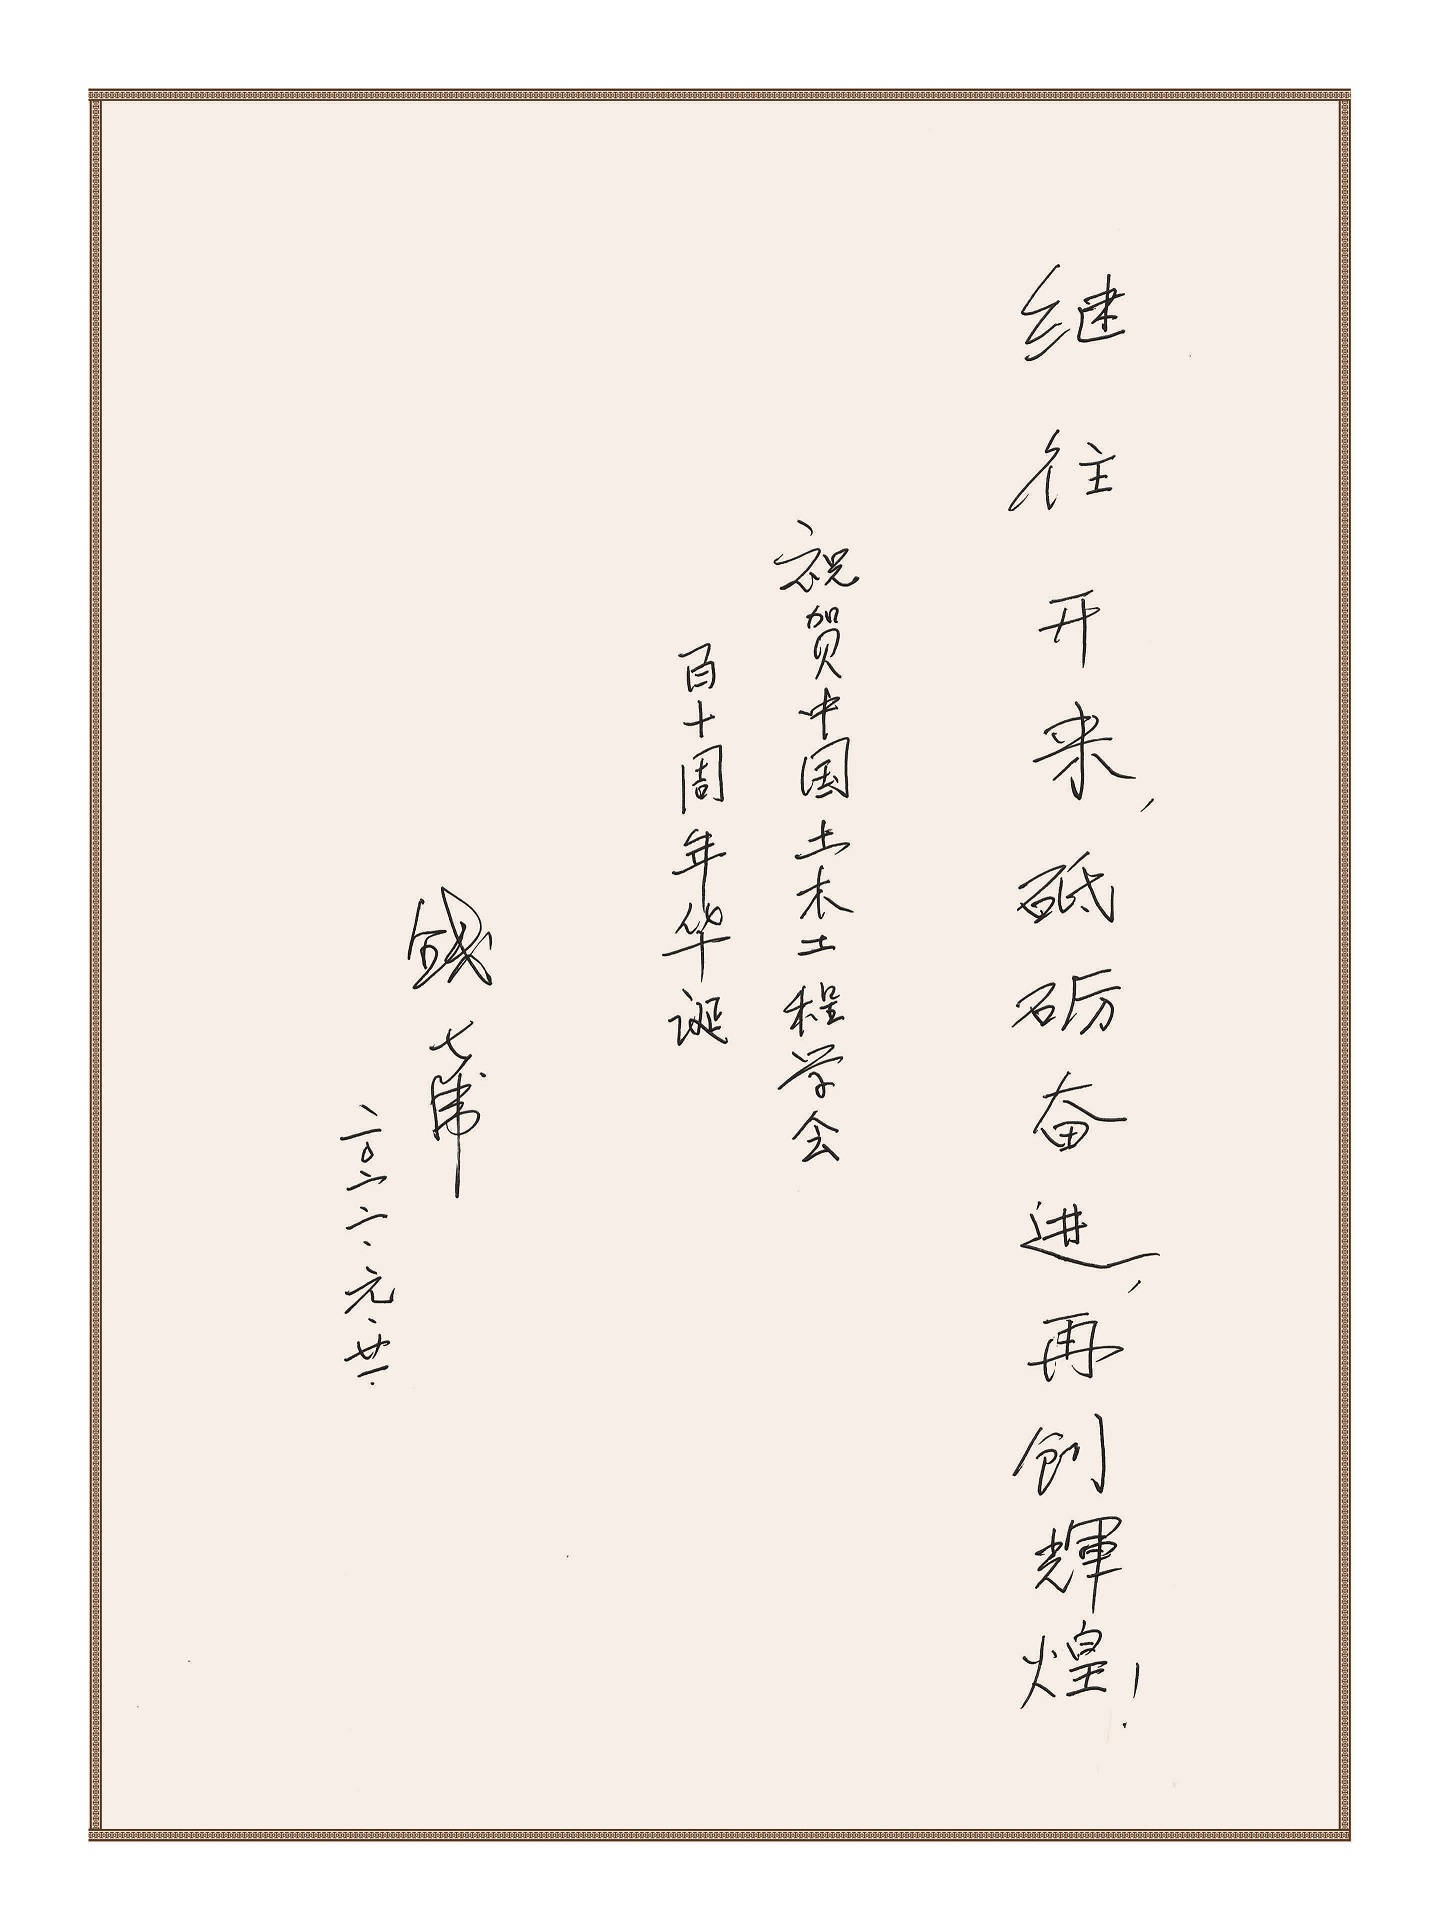 继往开来，砥砺奋进，再创輝煌！
祝贺中国土木工程学会
百十周年华诞
钱七虎
二〇二二.元.廿一.